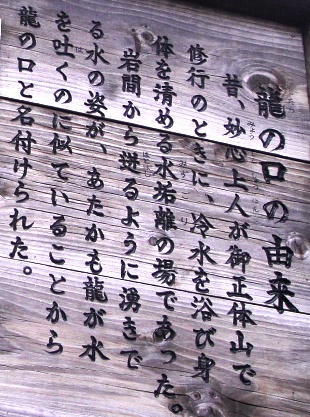 龍の口の由来
昔、妙心上人が御正体山で
修行のときに、冷水を浴び身
体を清める水垢離の場であった。
岩間から迸るように湧きで
る水の姿が、あたかも龍が水
を吐くのに似ていることから
龍の口と名付けられた。